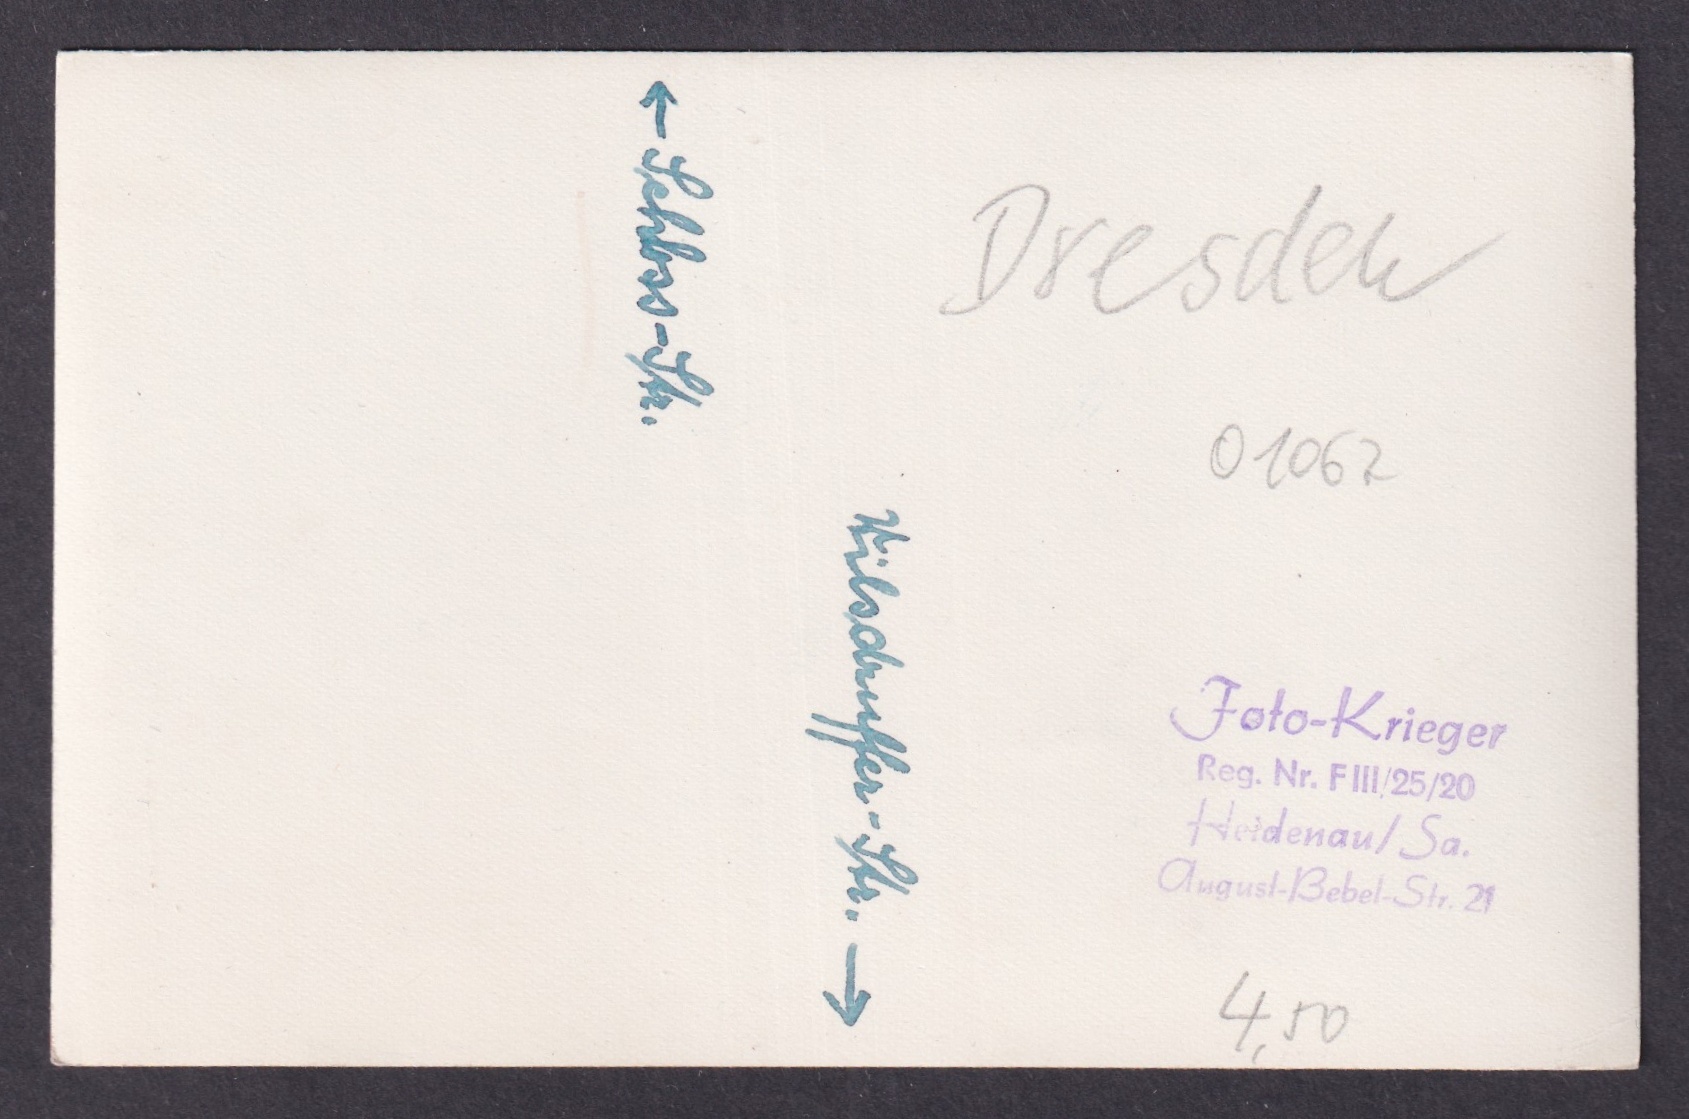 ← Schloss-Str.
Wilsdruffer-Str. →
Dresden
01067
Foto-Krieger
Reg. Nr. F III/25/20
Heidenau/Sa.
August-Bebel-Str. 21
4,50